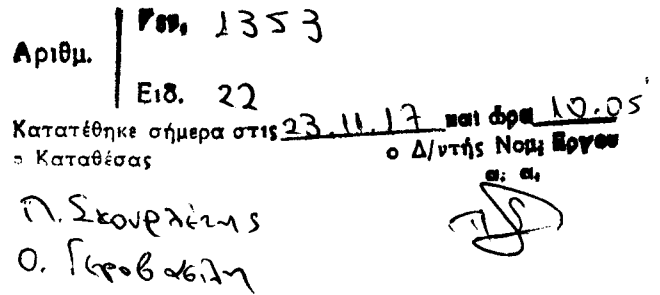 Αριθμ. Γεν. 1353
Ειδ. 22
Κατατέθηκε σήμερα στις 23.11.17 και ώρα 10.05'
ο Καταθέσας ο Δ/ντής Νομ: Έργου
α: α,
Π. Σκουρλέτης
Ο. Γεροβασίλη